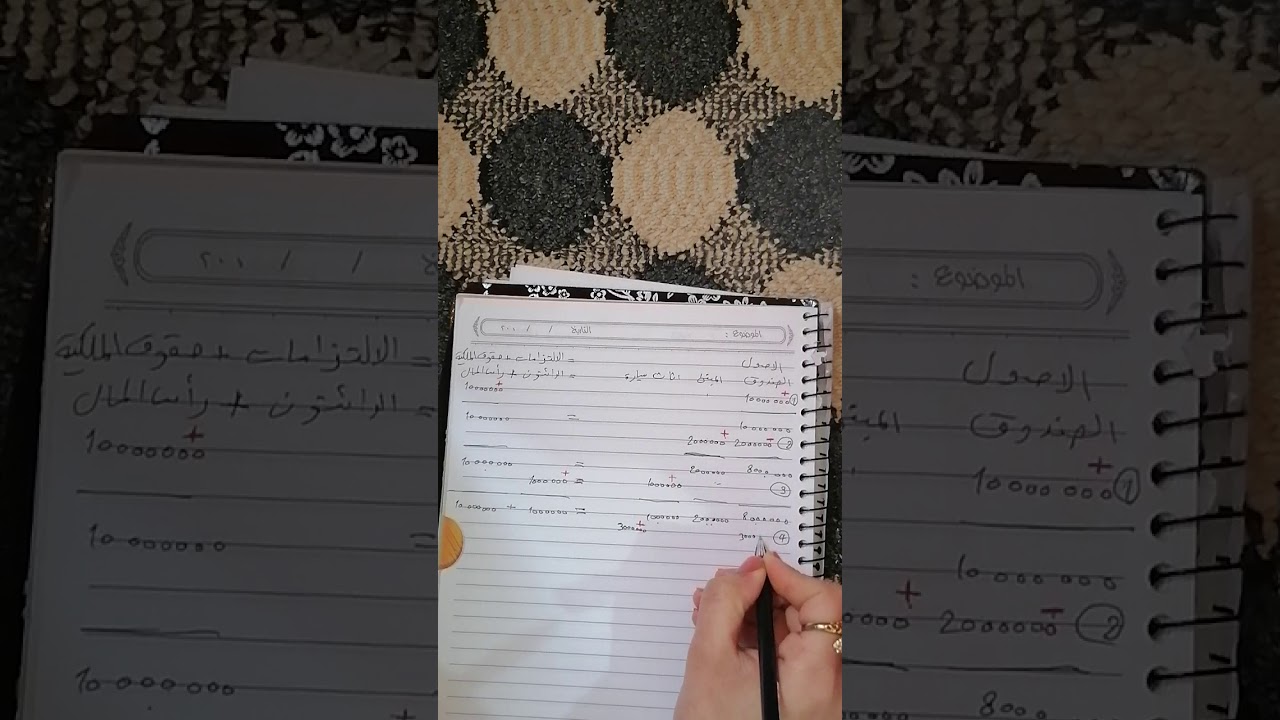 الموضوع : التاريخ / / ٢٠١
الاصول = الالتزامات + حقوق الملكية
الصندوق المبنى اثاث سيارة = الدائنون + رأس المال
① 10000000+ 10000000+
10000000 = 10000000
② 2000000- 2000000+
8000 2000000 = 10000000
③ 1000000+ = 1000000+
8000000 2000000 1000000 = 1000000 + 10000000
④ 3000 300000+